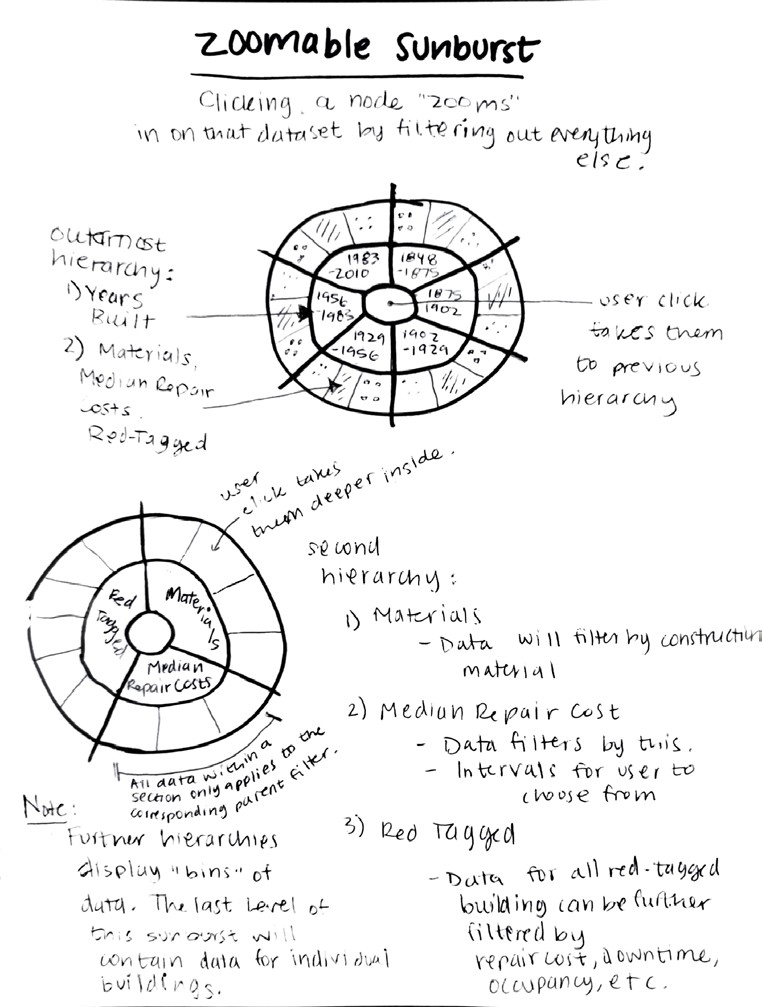 zoomable sunburst
Clicking a node "zooms"
in on that dataset by filtering out everything
else.
outermost
hierarchy:
1) Years
Built
2) Materials,
Median Repair
costs.
Red-Tagged
1983
-2010
1848
-1875
1956
-1983
1875
1902
1929
-1956
1902
-1929
user click
takes them
to previous
hierarchy
user
click takes
them deeper inside.
Red
Tagged
Materials
Median
Repair Costs
All data within a
section only applies to the
corresponding parent filter.
second
hierarchy:
1) Materials
- Data will filter by construction
material
2) Median Repair Cost
- Data filters by this.
- Intervals for user to
choose from
3) Red Tagged
- Data for all red-tagged
building can be further
filtered by
repair cost, downtime,
occupancy, etc.
Note:
Further hierarchies
display "bins" of
data. The last level of
this sunburst will
contain data for individual
buildings.